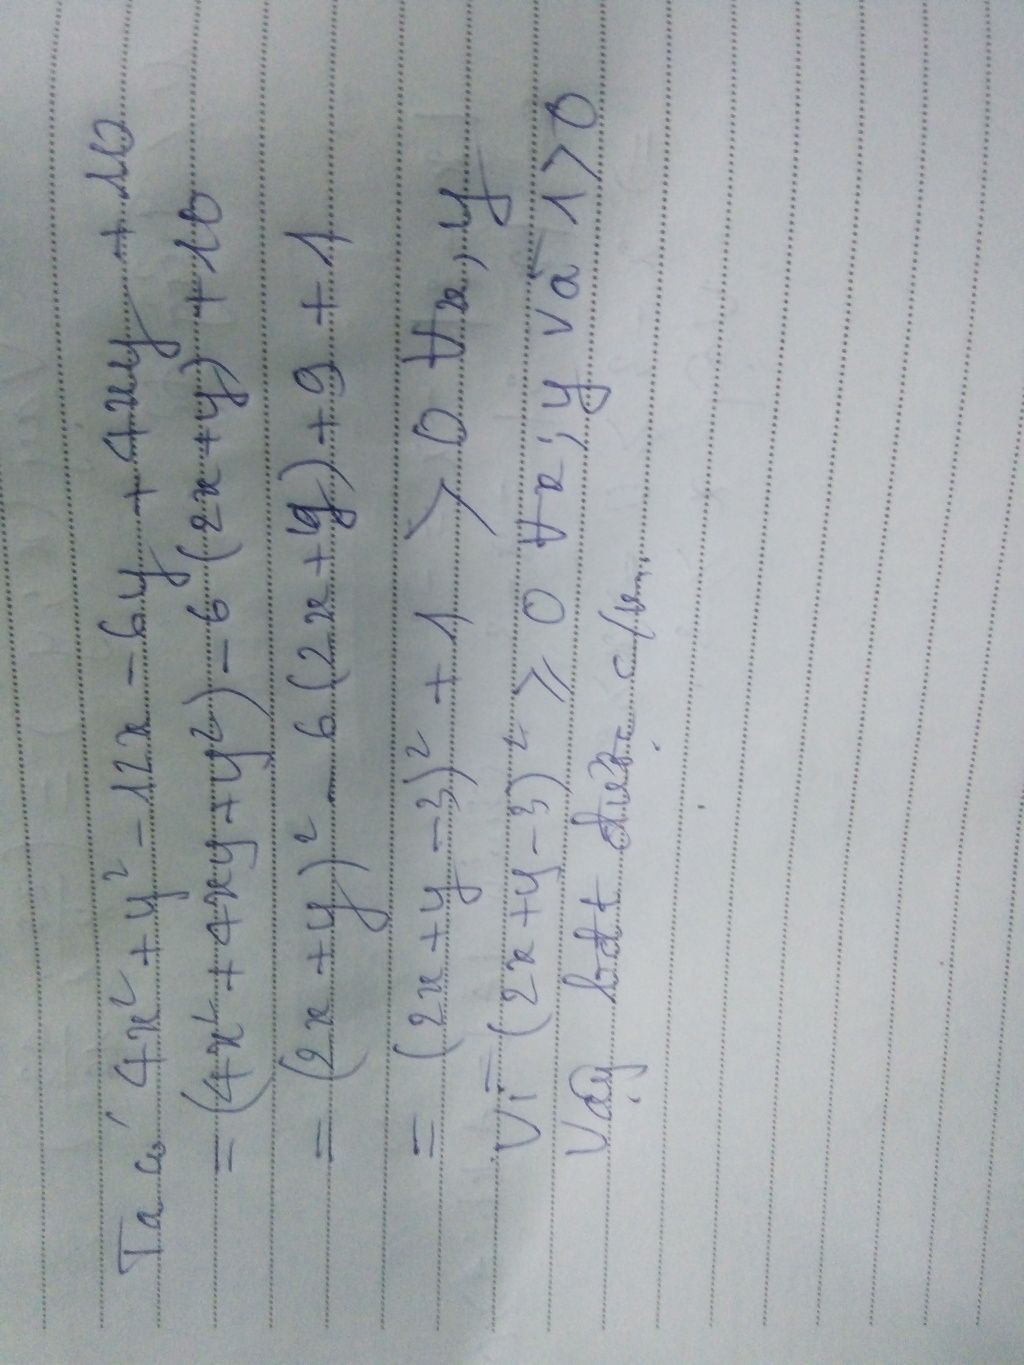 Ta có 4x² + y² - 12x - 6y + 4xy + 10
= (4x² + 4xy + y²) - 6 (2x + y) + 10
= (2x + y)² - 6 (2x + y) + 9 + 1
= (2x + y - 3)² + 1 > 0 ∀x, y
Vì (2x + y - 3)² ≥ 0 ∀x; y và 1 > 0
Vậy bđt được c/m.